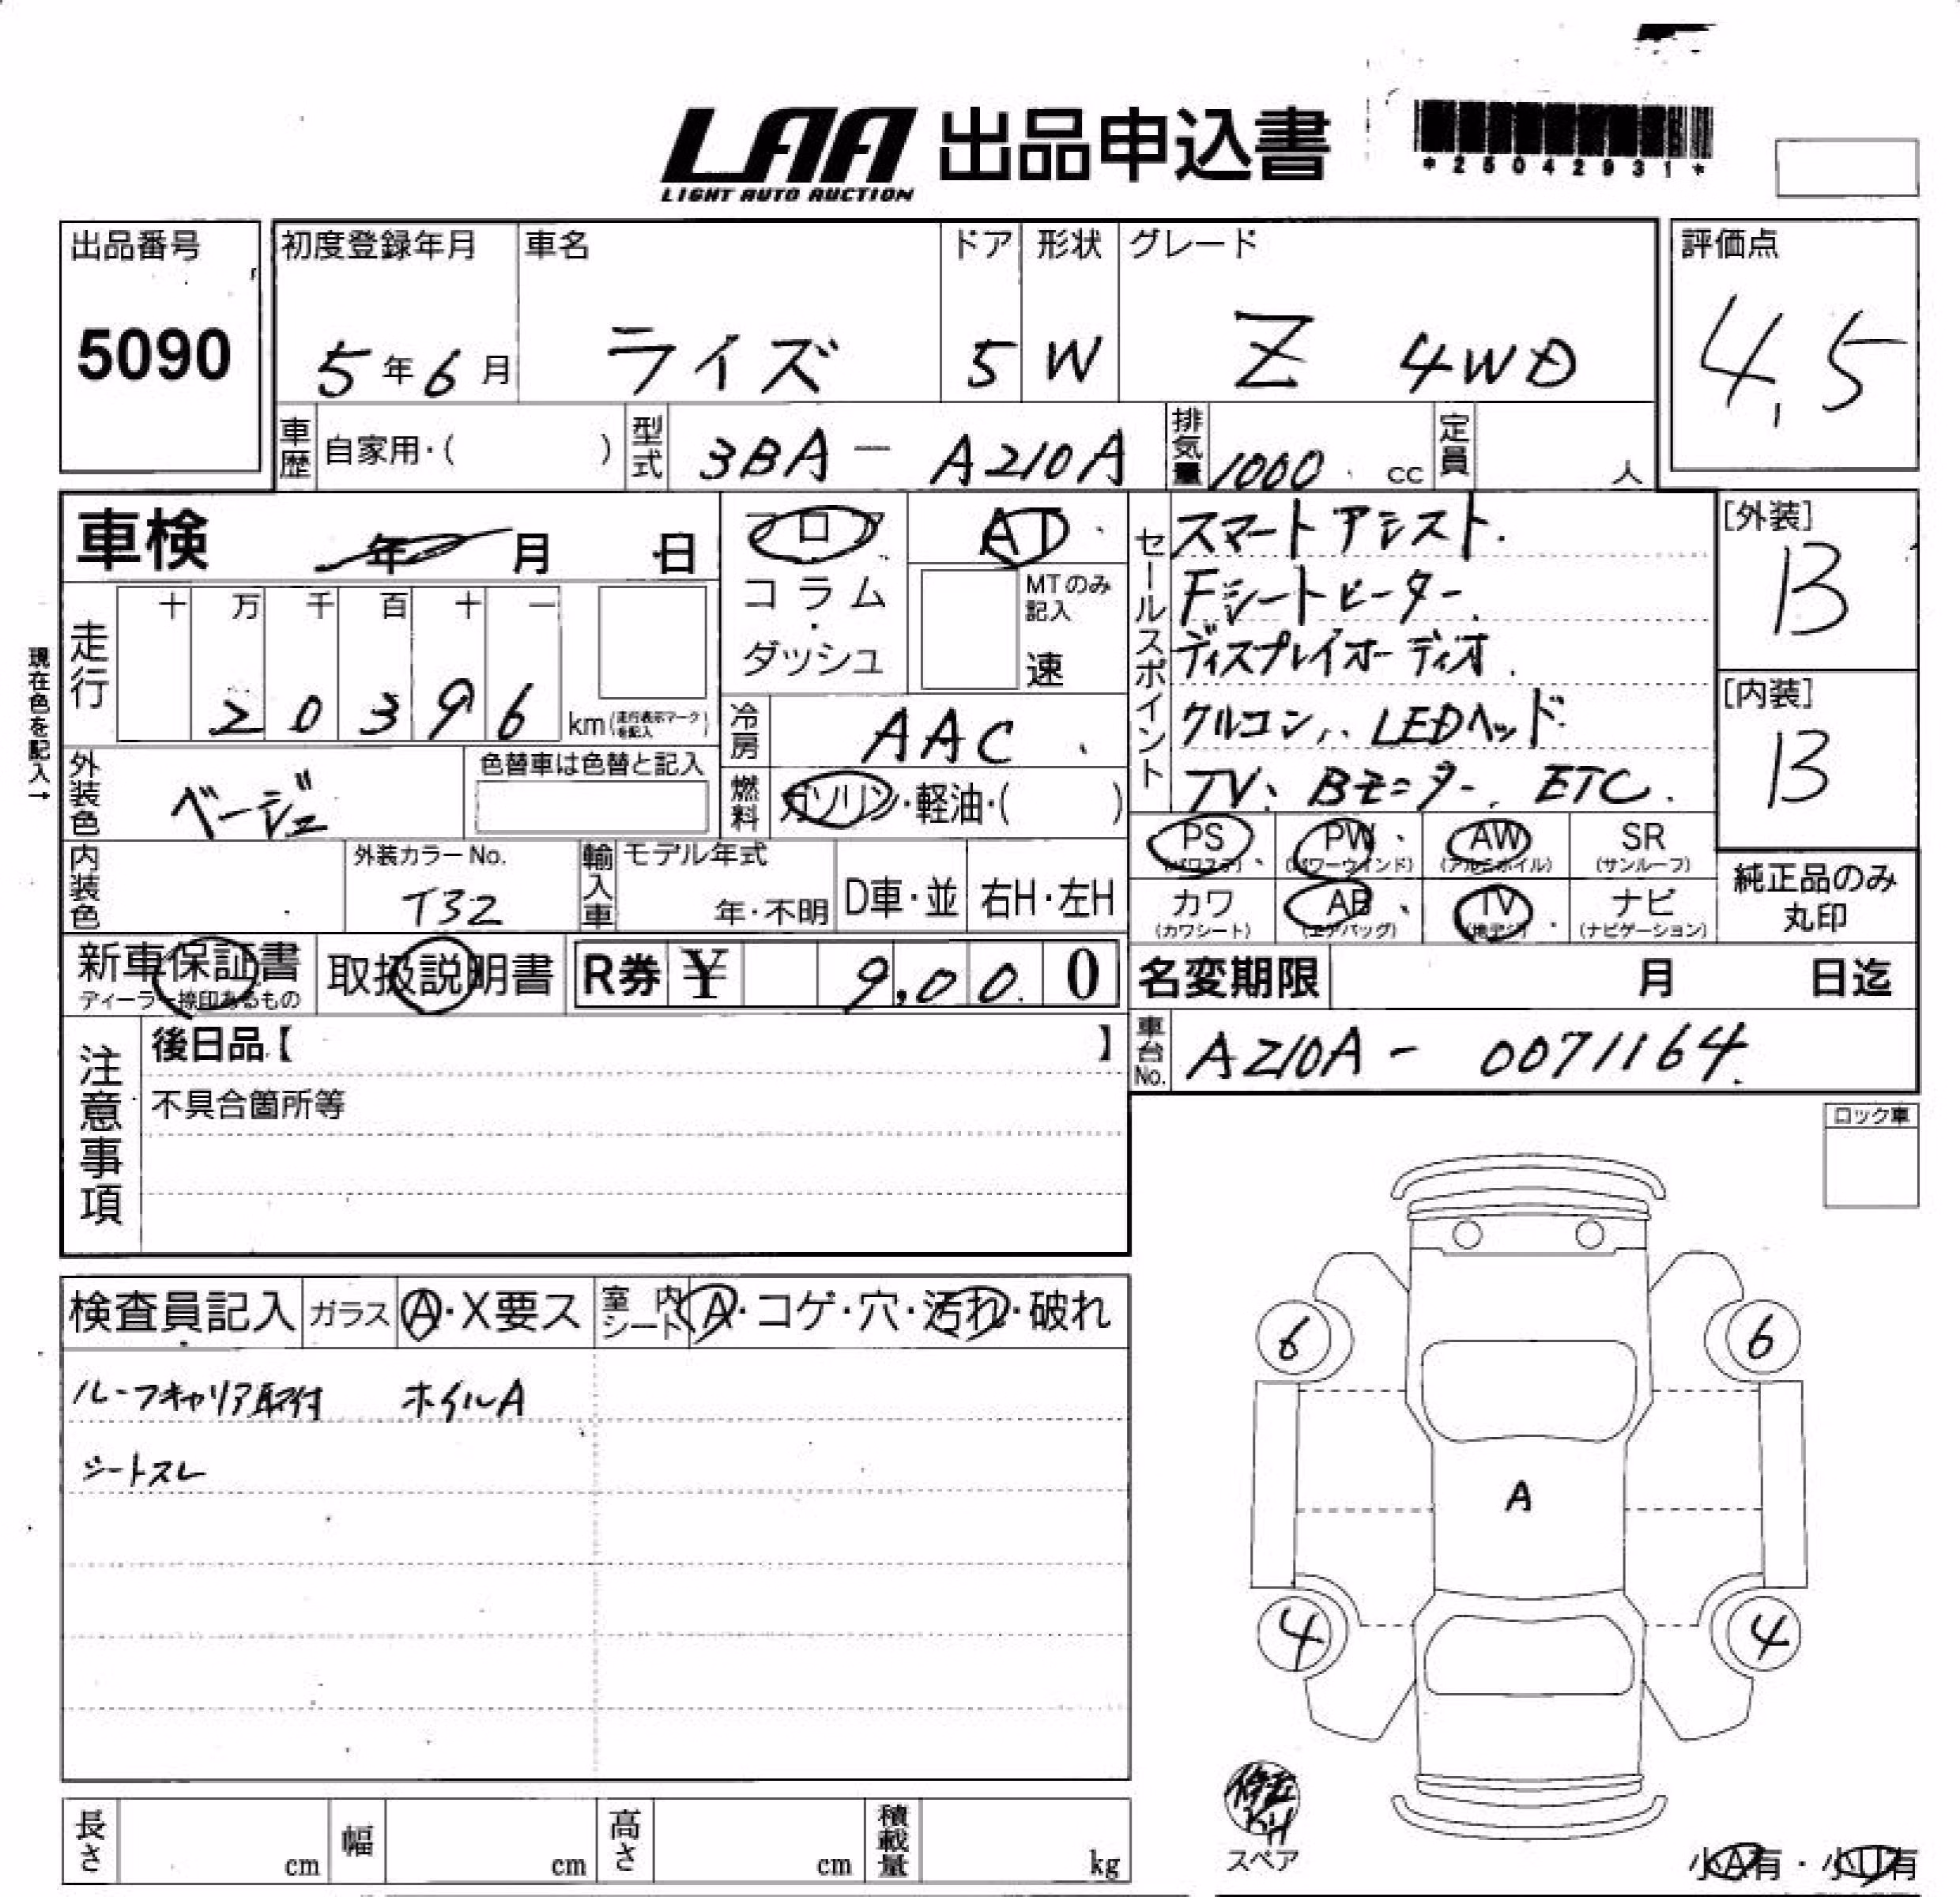 LAA 出品申込書
LIGHT AUTO AUCTION
*25042931*
出品番号
5090
初度登録年月
5年6月
車名
ライズ
ドア
5
形状
W
グレード
Z 4WD
評価点
4.5
車歴
自家用・( )
型式
3BA - A210A
排気量
1000 cc
定員
人
車検 年 月 日
フロア
コラム
・
ダッシュ
AT
MTのみ記入
速
セールスポイント
スマートアシスト.
Fシートヒーター.
ディスプレイオーディオ.
クルコン, LEDヘッド
TV、Bモニター、ETC.
[外装]
B
[内装]
B
現在色を記入→
走行
十 万 千 百 十 一
2 0 3 9 6
km(走行表示マークを記入)
冷房
AAC
燃料
ガソリン・軽油・( )
外装色
ベージュ
色替車は色替と記入
内装色
外装カラーNo.
T32
輸入車
モデル年式
年・不明
D車・並
右H・左H
PS
(パワステ)
PW
(パワーウインド)
AW
(アルミホイル)
SR
(サンルーフ)
カワ
(カワシート)
AB
(エアバッグ)
TV
(地デジ)
ナビ
(ナビゲーション)
純正品のみ
丸印
新車保証書
ディーラー捺印あるもの
取扱説明書
R券 ¥ 9,000
名変期限 月 日迄
車台No.
A210A - 0071164
注意事項
後日品【 】
不具合箇所等
ロック車
検査員記入
ガラス
A・X要ス
室内シート
A・コゲ・穴・汚れ・破れ
ルーフキャリア取付 ホイルA
シートスレ
6
6
A
4
4
スペア
長さ cm
幅 cm
高さ cm
積載量 kg
小A有・小U有